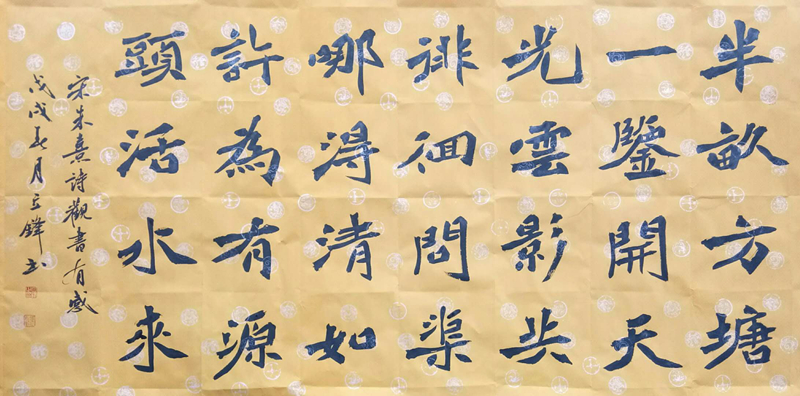 半畝方塘
一鑒開天
光雲影共
徘徊問渠
哪得清如
許為有源
頭活水來
宋朱熹詩觀書有感
戊戌年月立鋒書